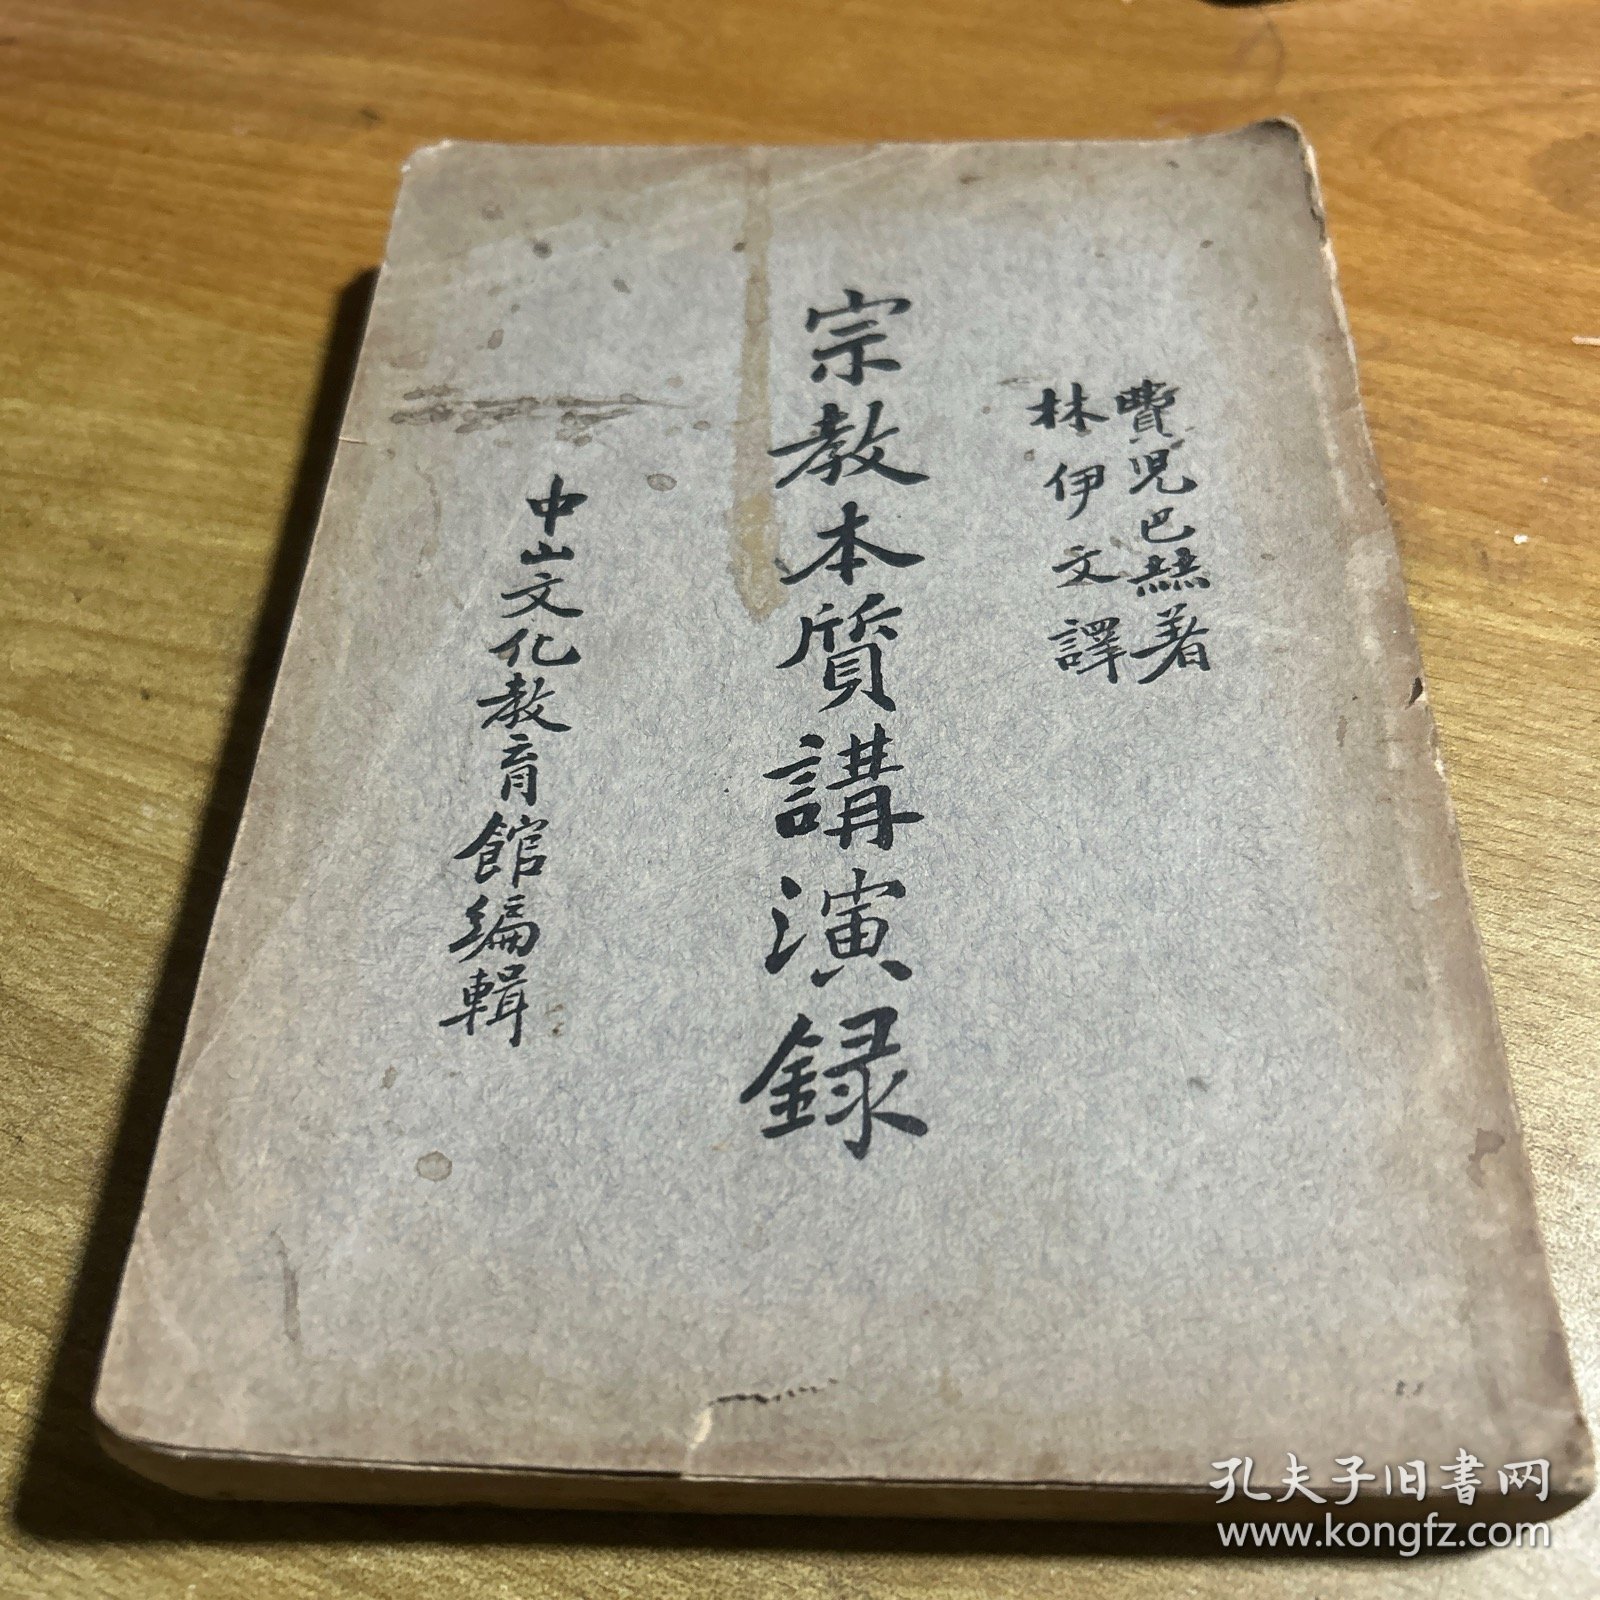 費兒巴赫著
林伊文譯
宗教本質講演録
中山文化教育館編輯
孔夫子旧書网
www.kongfz.com